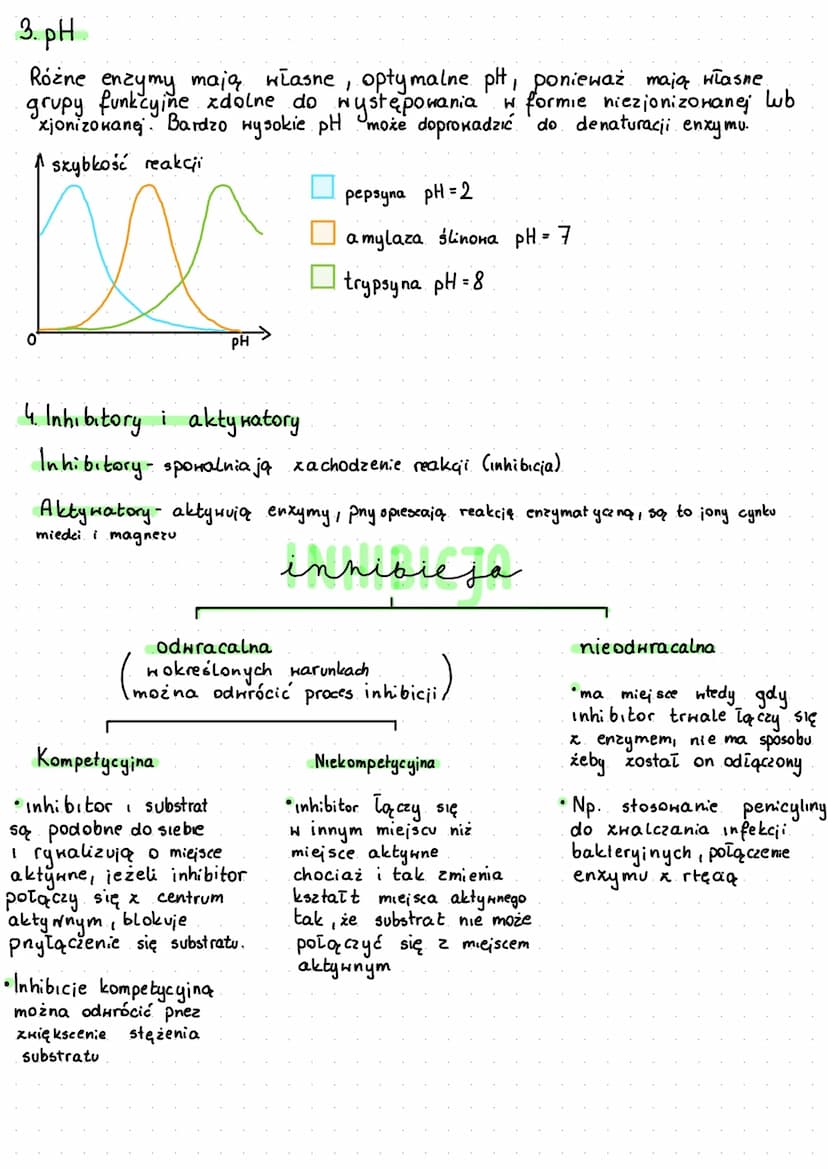 3. pH
Różne enzymy mają własne, optymalne pH, ponieważ mają własne
grupy funkcyjne zdolne do występowania w formie niezjonizowanej lub
zjonizowanej. Bardzo wysokie pH może doprowadzić do denaturacji enzymu.
szybkość reakcji
pepsyna pH = 2
amylaza ślinowa pH = 7
trypsyna pH = 8
0
pH
4. Inhibitory i aktywatory
Inhibitory - spowalniają zachodzenie reakcji (inhibicja)
Aktywatory - aktywują enzymy, przyspieszają reakcję enzymatyczną, są to jony cynku
miedzi i magnezu
INHIBICJA
inhibicja
odwracalna
(w określonych warunkach
można odwrócić proces inhibicji)
Kompetycyjna
• inhibitor i substrat
są podobne do siebie
i rywalizują o miejsce
aktywne, jeżeli inhibitor
połączy się z centrum
aktywnym, blokuje
przyłączenie się substratu.
• Inhibicje kompetycyjną
można odwrócić przez
zwiększenie stężenia
substratu
Niekompetycyjna
• inhibitor łączy się
w innym miejscu niż
miejsce aktywne
chociaż i tak zmienia
kształt miejsca aktywnego
tak, że substrat nie może
połączyć się z miejscem
aktywnym
nieodwracalna
• ma miejsce wtedy gdy
inhibitor trwale łączy się
z enzymem, nie ma sposobu
żeby został on odłączony
• Np. stosowanie penicyliny
do zwalczania infekcji
bakteryjnych, połączenie
enzymu z rtęcią